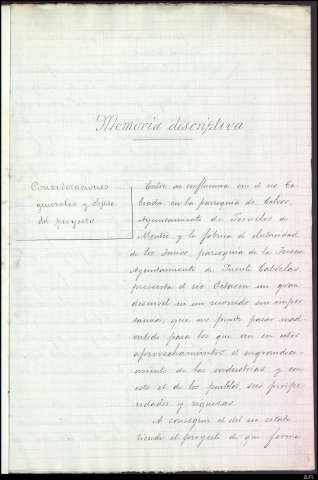 Memoria descriptiva
Consideraciones
generales y objeto
del proyecto
Entre su confluencia con el río Ca
brada, en la parroquia de Calvos,
Ayuntamiento de Fornelos de
Montes y la fábrica de electricidad
de los Sres. parroquia de la Insua
Ayuntamiento de Puente Caldelas,
presenta el río Oitavén un gran
desnivel en un recorrido sin impor
tancia, que no puede pasar inad
vertido para los que ven en estos
aprovechamientos el engrandeci
miento de las industrias y con
este el de los pueblos, sus prospe
ridades y riquezas.
A conseguir el del río citado
tiende el proyecto de que forma